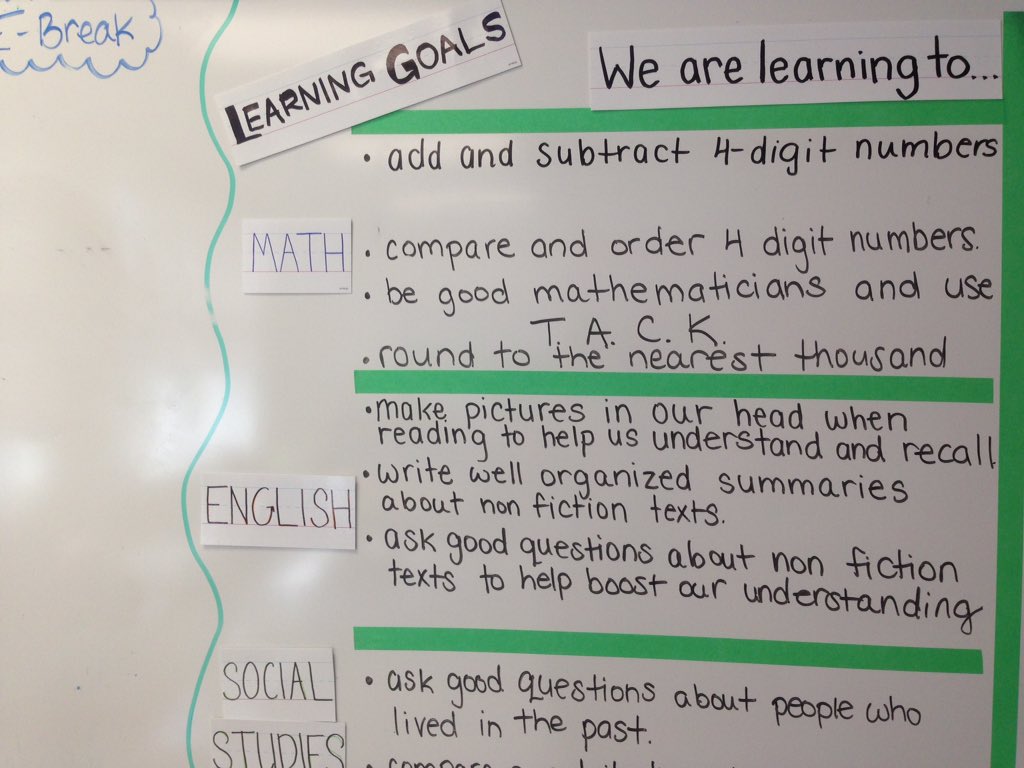 E-Break
LEARNING GOALS
We are learning to...
• add and subtract 4-digit numbers
MATH
• compare and order 4 digit numbers.
• be good mathematicians and use
T. A. C. K.
• round to the nearest thousand
• make pictures in our head when
reading to help us understand and recall
ENGLISH
• write well organized summaries
about non fiction texts.
• ask good questions about non fiction
texts to help boost our understanding
SOCIAL
STUDIES
• ask good questions about people who
lived in the past.